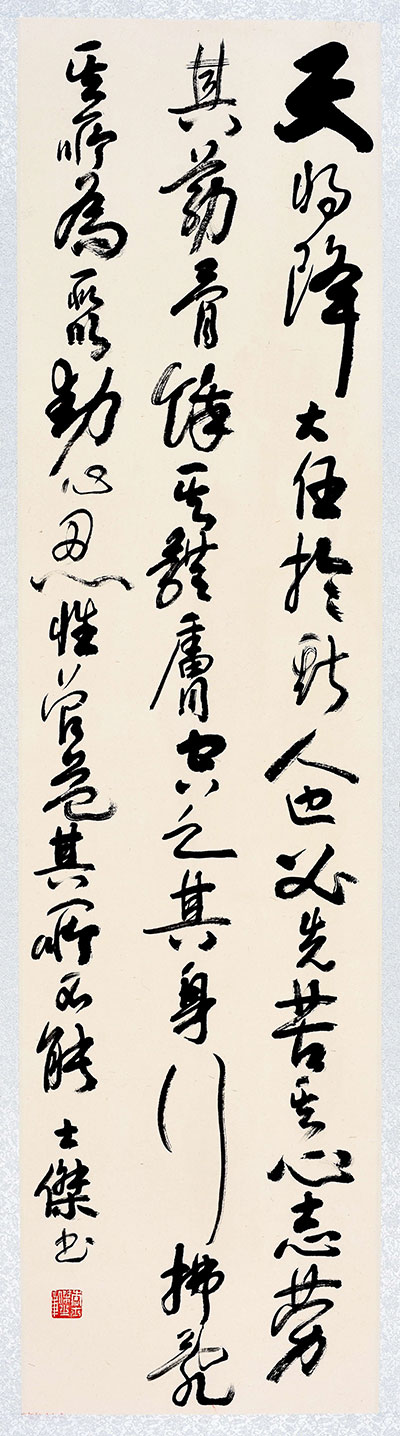 天將降大任於斯人也必先苦其心志勞
其筋骨餓其體膚空乏其身行拂亂
其所為所以動心忍性曾益其所不能士傑書